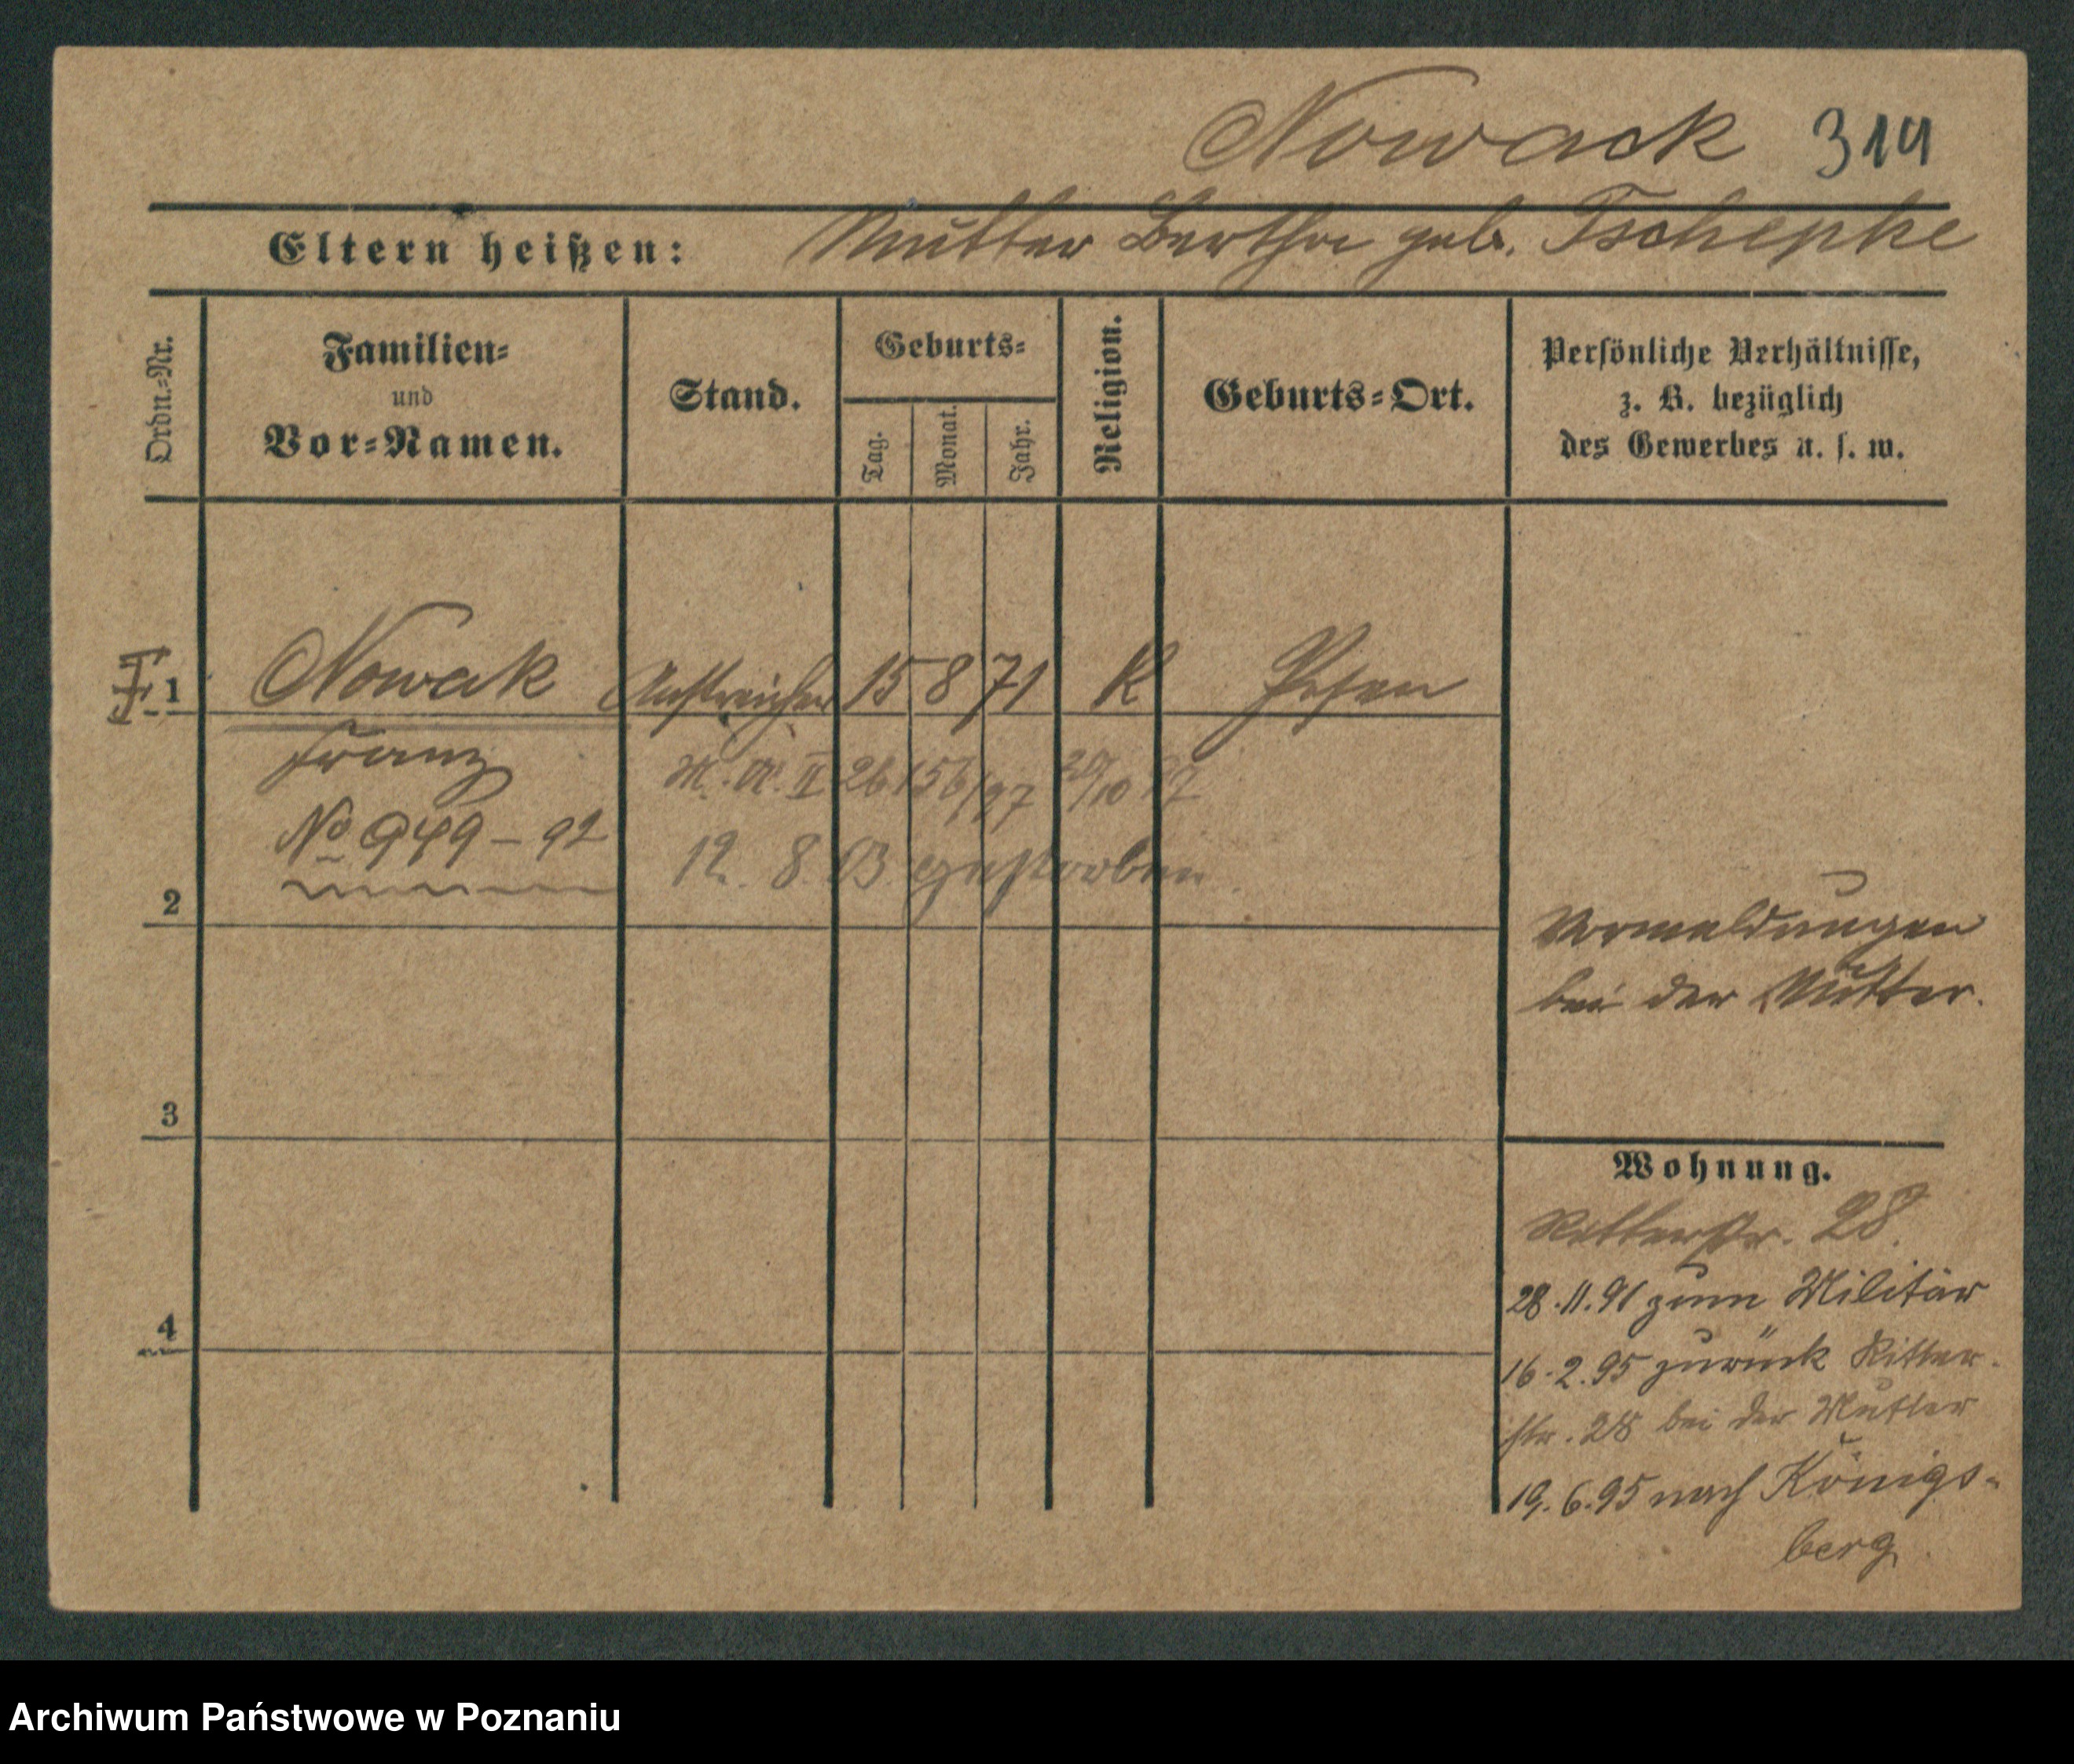 Nowack 314
Eltern heißen: Mutter Bertha geb. Tschepke
Ordn.=Nr.
Familien=
und
Vor=Namen.
Stand.
Geburts=
Tag.
Monat.
Jahr.
Religion.
Geburts=Ort.
Persönliche Verhältnisse,
z. B. bezüglich
des Gewerbes u. s. w.
1 Nowak Anstreicher 15 8 71 K Posen
Franz
M. II 26156/97 10 97
No 949 – 92
12. 8. 03 gestorben.
2
Vormeldungen
bei der Mutter.
3
4
Wohnung.
Ritterstr. 28.
28.11.91 zum Militär
16.2.95 zurück Ritter-
str. 28 bei der Mutter
19.6.95 nach Königs-
berg
Archiwum Państwowe w Poznaniu